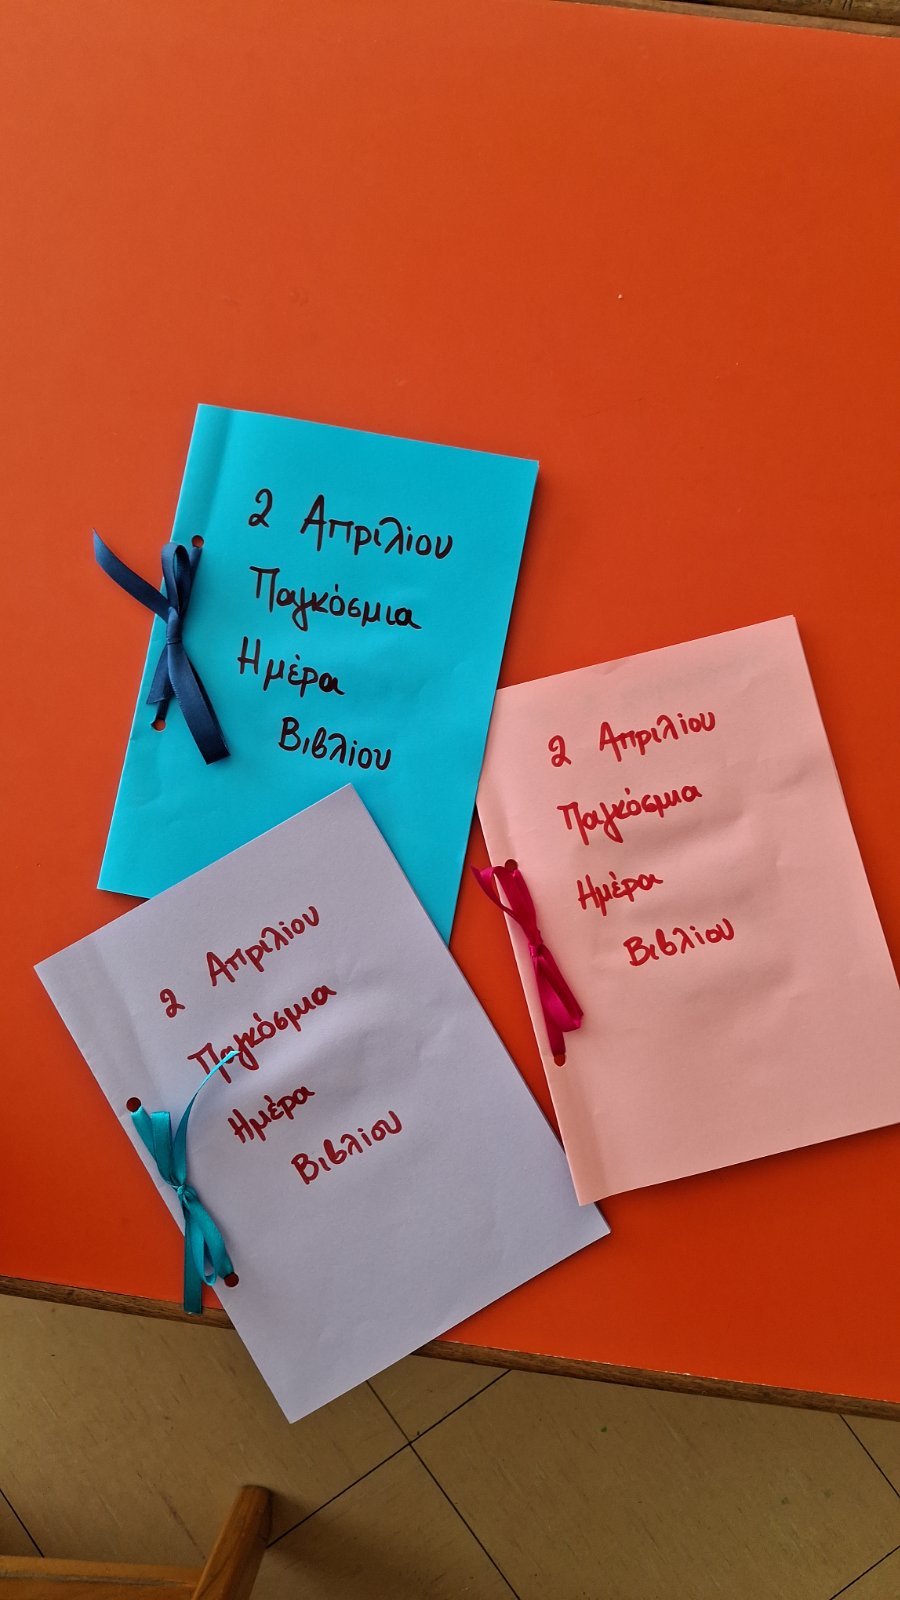 2 Απριλίου
Παγκόσμια
Ημέρα
Βιβλίου
2 Απριλίου
Παγκόσμια
Ημέρα
Βιβλίου
2 Απριλίου
Παγκόσμια
Ημέρα
Βιβλίου